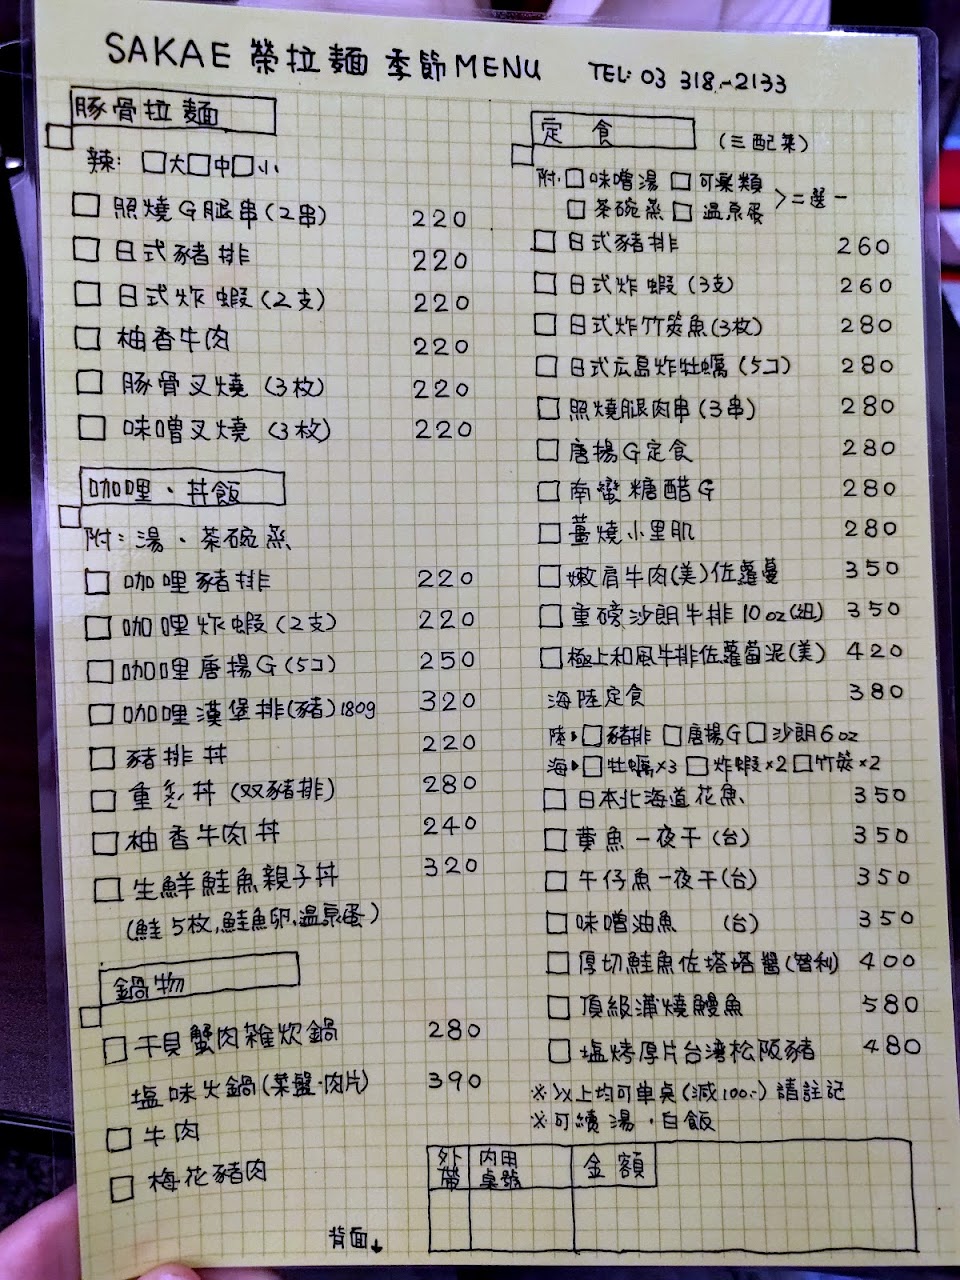 SAKAE 榮拉麵 季節MENU TEL: 03 318-2133
豚骨拉麵
辣: □大□中□小
□ 照燒G腿串(2串) 220
□ 日式豬排 220
□ 日式炸蝦(2支) 220
□ 柚香牛肉 220
□ 豚骨叉燒 (3枚) 220
□ 味噌叉燒 (3枚) 220
咖哩、丼飯
附: 湯、茶碗蒸
□ 咖哩豬排 220
□ 咖哩炸蝦(2支) 220
□ 咖哩唐揚G(5コ) 250
□ 咖哩漢堡排(豬)180g 320
□ 豬排丼 220
□ 重量丼 (双豬排) 280
□ 柚香牛肉丼 240
□ 生鮮鮭魚親子丼 320
(鮭5枚,鮭魚卵,溫泉蛋)
鍋物
□ 干貝蟹肉雜炊鍋 280
塩味火鍋(菜盤·肉片) 390
□ 牛肉
□ 梅花豬肉
背面↓
定食 (三配菜)
附:□味噌湯 □可樂類
□茶碗蒸 □溫泉蛋 >二選一
□ 日式豬排 260
□ 日式炸蝦 (3支) 260
□ 日式炸竹筴魚(3枚) 280
□ 日式広島炸牡蠣 (5コ) 280
□ 照燒腿肉串(3串) 280
□ 唐揚G定食 280
□ 南蠻糖醋G 280
□ 薑燒小里肌 280
□ 嫩肩牛肉(美)佐蘿蔓 350
□ 重磅沙朗牛排10oz(紐) 350
□ 極上和風牛排佐蘿蔔泥(美) 420
海陸定食 380
陸▸□豬排 □唐揚G □沙朗6oz
海▸□牡蠣×3 □炸蝦×2 □竹筴×2
□ 日本北海道花魚 350
□ 黃魚一夜干(台) 350
□ 午仔魚一夜干(台) 350
□ 味噌油魚 (台) 350
□ 厚切鮭魚佐塔塔醬(智利) 400
□ 頂級蒲燒鰻魚 580
□ 塩烤厚片台湾松阪豬 480
※以上均可單桌(減100.-)請註記
※可續湯、白飯
外帶 內用桌號 金額